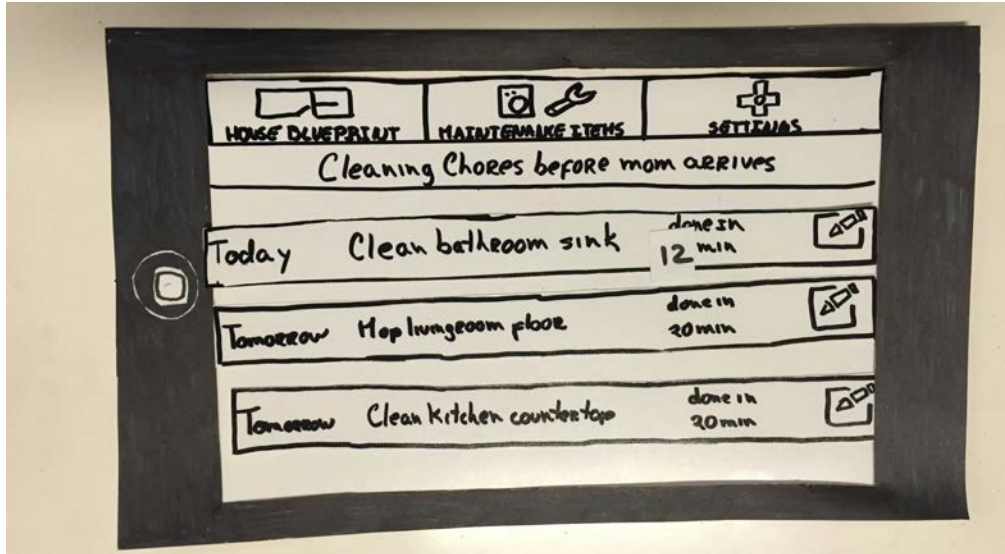 HOUSE BLUEPRINT
MAINTENANKE ITEMS
SETTINGS
Cleaning Chores before mom arrives
Today Clean bathroom sink done in
12 min
Tomorrow Mop livingroom floor done in
20min
Tomorrow Clean Kitchen countertop done in
20min